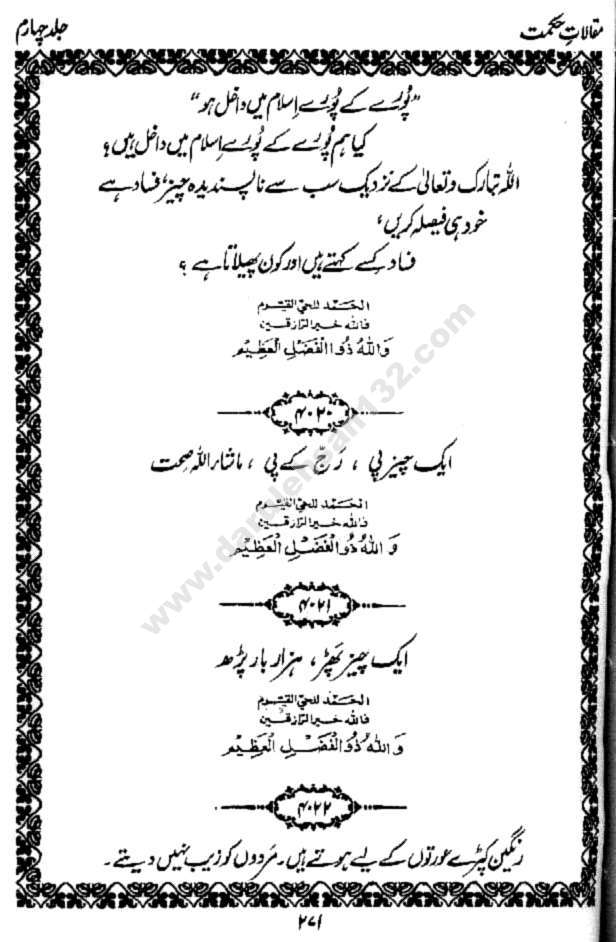 مقالاتِ حکمت
جلد چہارم
”پُورے کے پُورے اِسلام میں داخل ہو“
کیا ہم پُورے کے پُورے اِسلام میں داخل ہیں؟
اللہ تبارک و تعالیٰ کے نزدیک سب سے ناپسندیدہ چیز ’فساد ہے
خود ہی فیصلہ کریں‘
فساد کِسے کہتے ہیں اور کون پھیلاتا ہے ؟
الحَمد للحیّ القیّوم
فاللہ خیر الرازقین
وَاللہُ ذُو الْفَضْلِ الْعَظِیْم
۴۰۲۰
ایک چیز پی ، رَجّ کے پی ، ماشاء اللہ صحت
الحَمد للحیّ القیّوم
فاللہ خیر الرازقین
وَاللہُ ذُو الْفَضْلِ الْعَظِیْم
۴۰۲۱
ایک چیز پھَڑ ، ہزار بار پڑھ
الحَمد للحیّ القیّوم
فاللہ خیر الرازقین
وَاللہُ ذُو الْفَضْلِ الْعَظِیْم
۴۰۲۲
رنگین کپڑے عورتوں کے لیے ہوتے ہیں۔ مَردوں کو زیب نہیں دیتے۔
۲۷۱
www.darulehsan132.com